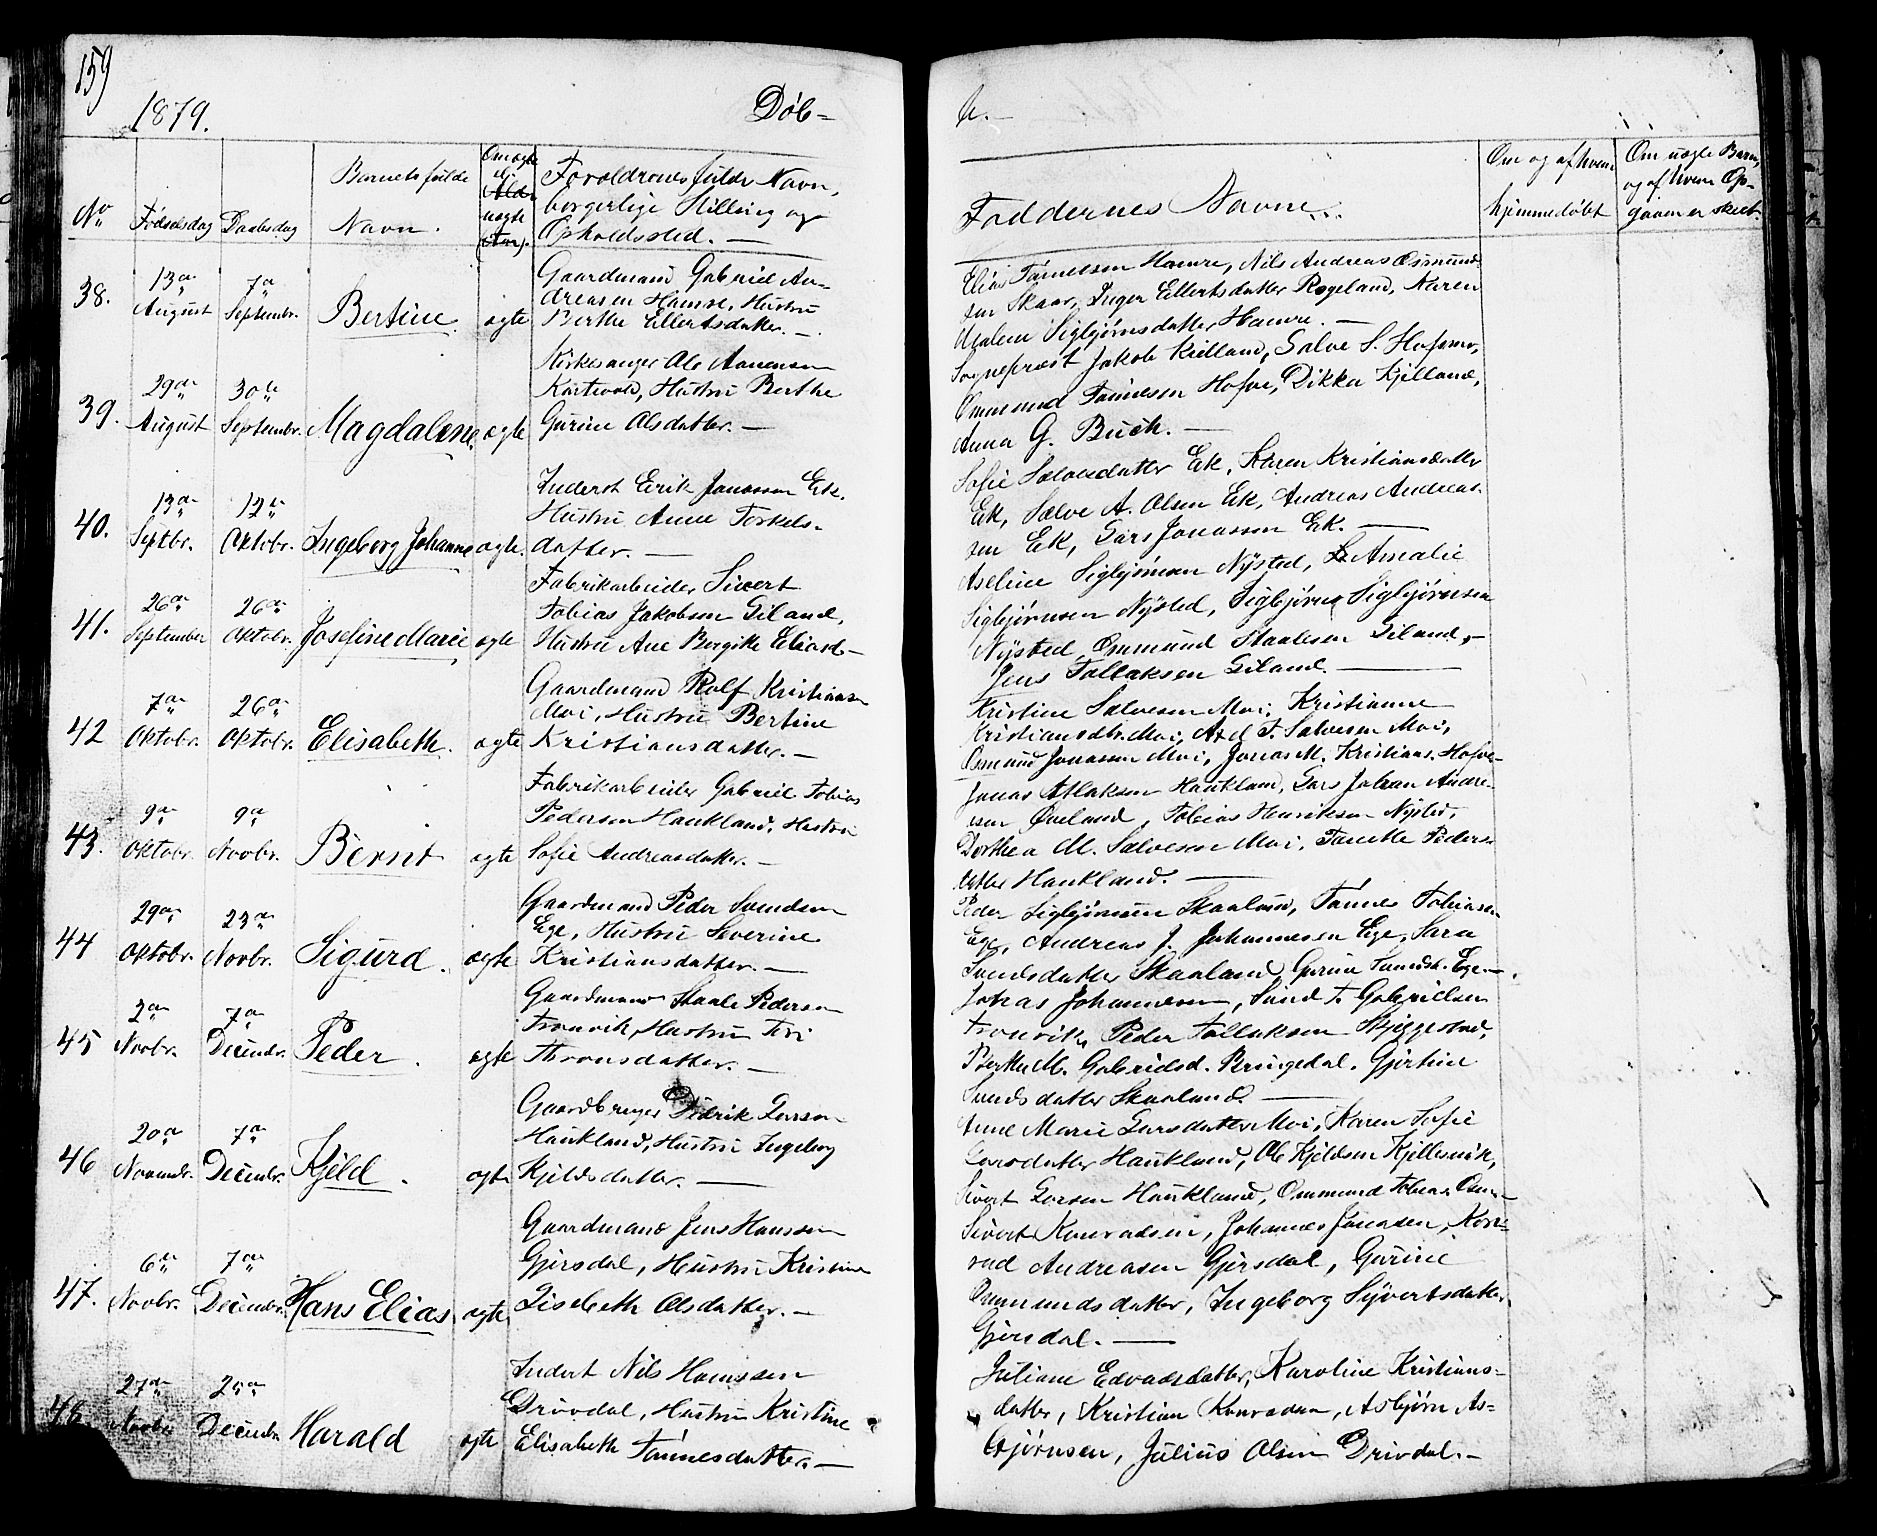 159
1879.
Døb-
te.
No
Fødselsdag
Daabsdag
Barnets fulde
Navn.
Om ægte
ell.
uægte
Forældrenes fulde Navn,
borgerlige Stilling og
Opholdssted. —
Faddernes Navne.
Om og af hvem
hjemmedøbt
Om uægte Barn,
og af hvem Op-
gaven er skeet.
38.
13de
August
7de
Septembr.
Bertine
ægte
Gaardmand Gabriel An-
dreasen Hamre, Hustru
Berthe Ellertsdatter. —
Elias Tønnesen Hamre, Nils Andreas Osmund-
sen Skaar, Inger Ellertsdatter Rogeland, Karen
Malene Sigbjørnsdatter Hamre. —
39.
29de
August
30te
Septembr.
Magdalene.
ægte
Kirkesanger Ole Aanensen
Hustru Berthe
Gurine Olsdatter. —
Sogneprest Jakob Kielland, Salve S. Hofsmo,
Ommund Tønnesen Hofve, Dikka Kjelland,
Anna G. Buch. —
40.
13de
Septbr.
12te
Oktobr.
Ingeborg Johanne
ægte.
Inderst Eerik Jonassen Eek.
Hustru Anne Torkels-
datter. —
Sofie Salvesdatter Eek, Karen Kristiansdatter
Eek, Salve A. Olsen Eek, Andreas Andreas-
sen Eek, Lars Jonassen Eek. —
41.
26de
September
26de
Oktobr.
Josefine Marie
ægte
Fabrikarbeider Sivert
Tobias Jakobsen Eiland,
Hustru Ane Bergitte Eliasd-
Aseline Sigbjørnsen Nysted, Amalie
Sigbjørnsen Nysted, Sigbjørn Sigbjørnsen
Nysted, Ommund Staalesen Eiland, -
Jens Tollaksen Eiland. —
42
7de
Oktobr.
26de
Oktobr.
Elisabeth.
ægte
Gaardmand Rolf Kristiansen
Moi, Hustru Bertine
Kristiansdatter. —
Kristine Salvesen Moi, Kristianne
Kristiansdtr. Moi, T. Salvesen Moi,
Osmund Jonassen Moi, Jonas M. Kristians. Hofve-
43.
9de
Oktobr.
9de
Novbr.
Bernt
ægte
Fabrikarbeider Gabriel Tobias
Pedersen Haukland, Hustru
Sofie Andreasdatter. —
Jonas Atlaksen Haukland, Lars Johan Andre-
sen Øveland, Tobias Henriksen Nysted,
Dorthea M. Salvesen Moi, Tanette Peders-
datter Haukland. —
44
29de
Oktobr.
23de
Novbr.
Sigurd.
ægte
Gaardmand Peder Svendsen
Ege, Hustru Severine
Kristiansdatter. —
Peder Sigbjørnsen Skaaland, Tønnes Tobiasen
Ege, Andreas J. Johannesen Ege, Sara
Svendsdatter Skaaland, Gurine Svendsd. Ege. -
45
2de
Novbr.
7de
Decembr.
Peder.
ægte
Gaardmand Staale Pedersen
Tronvik, Hustru Siri
Thronsdatter. —
Tobias Johannesen, Svend T. Gabrielsen
Tronvik, Peder Tollaksen Skjeggestad,
Berthe M. Gabrielsd. Bringedal, Gjertine
Svendsdatter Skaaland. —
46
20de
Novembr.
7de
Decembr.
Kjeld.
ægte
Gaardbruger Didrik Larsen
Haukland, Hustru Ingeborg
Kjeldsdatter. —
Anne Marie Larsdatter Moi, Karen Sofie
Larsdatter Haukland, Ole Kjeldsen Kjellesvik,
Sivert Larsen Haukland, Ommund Tobias Osm-
47.
6de
Novbr.
7de
Decembr.
Hans Elias
ægte
Gaardmand Jens Hansen
Gjersdal, Hustru Kristine
Lisebeth Olsdatter. —
Sivert Konradsen, Johannes Jonasen, Kon-
rad Andreasen Gjersdal, Gurine
Ommundsdatter, Ingeborg Syvertsdatter
Gjersdal. —
27de
Novbr.
25de
Decembr.
Harald
ægte
Inderst Nils Hanssen
Drivdal, Hustru Kristine
Elisabeth Tønnesdatter. —
Juliane Edvadsdatter, Karoline Kristians-
datter, Kristian Konradsen, Asbjørn As-
bjørnsen, Julius Olsen Drivdal. -